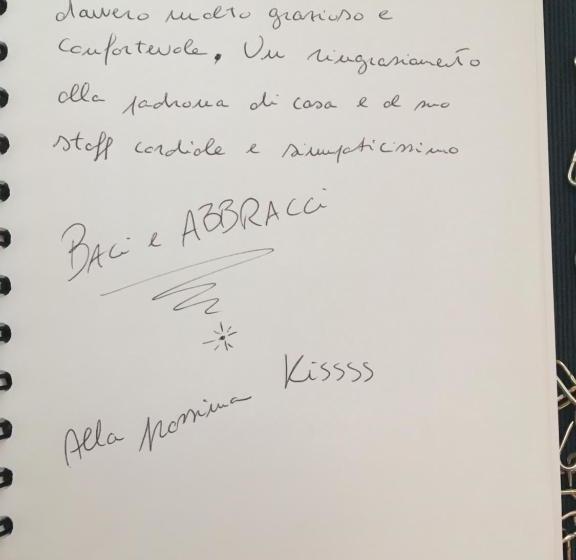 davvero molto grazioso e
confortevole. Un ringraziamento
alla padrona di casa e al suo
staff cordiale e simpaticissimo
BACi e ABBRACCi
Kissss
Alla prossima